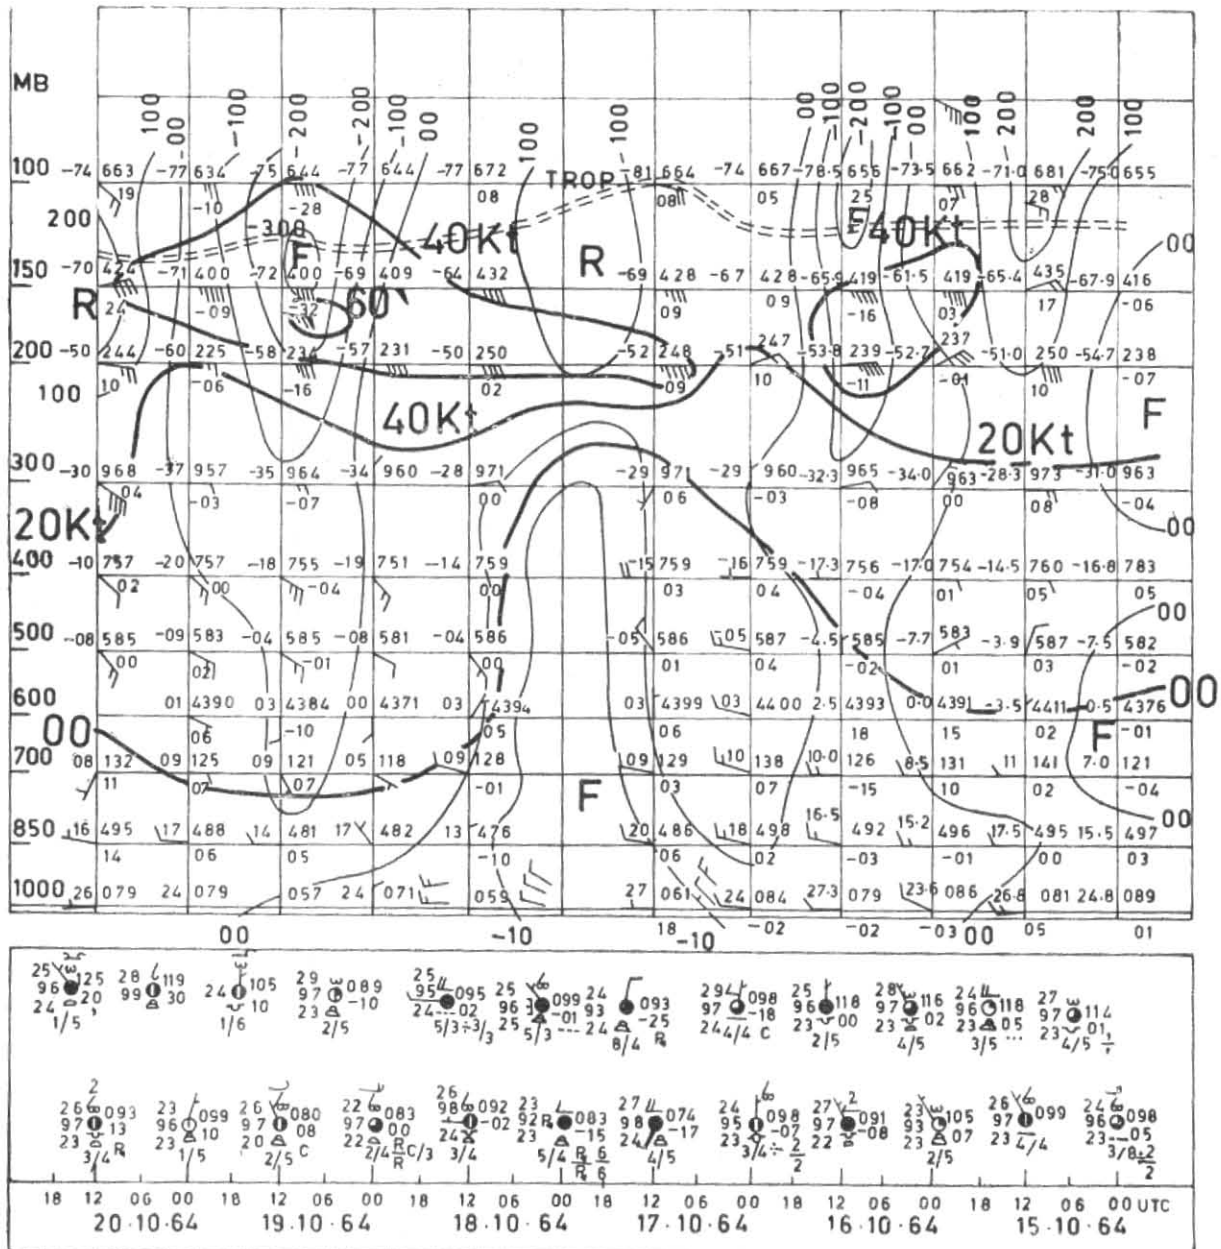 MB
100 00 -100 -200 -200 -100 00 100 100 00 -100 -200 -100 00 100 200 200 100
100 -74 663 -77 634 -75 644 -77 644 -77 672 TROP -81 664 -74 667 -78.5 656 -73.5 662 -71.0 681 -75.0 655
19 -10 -28 08 08 05 25 07 28
200 -300 F 40Kt R F 40Kt 00
150 -70 424 -71 400 -72 400 -69 409 -64 432 -69 428 -67 428 -65.9 419 -61.5 419 -65.4 435 -67.9 416
R 24 -09 -32 60 09 09 -16 03 17 -06
200 -50 244 -60 225 -58 234 -57 231 -50 250 -52 248 -51 247 -53.8 239 -52.7 237 -51.0 250 -54.7 238
10 -06 -16 02 09 10 -11 -01 10 -07
100 40Kt 20Kt F
300 -30 968 -37 957 -35 964 -34 960 -28 971 -29 971 -29 960 -32.3 965 -34.0 963 -28.3 973 -31.0 963
04 -03 -07 00 06 -03 -08 00 08 -04
20Kt 00
400 -10 757 -20 757 -18 755 -19 751 -14 759 -15 759 -16 759 -17.3 756 -17.0 754 -14.5 760 -16.8 783
02 00 -04 00 03 04 -04 01 05 05
00
500 -08 585 -09 583 -04 585 -08 581 -04 586 -05 586 -05 587 -4.5 585 -7.7 583 -3.9 587 -7.5 582
00 02 -01 00 01 04 -02 01 03 -02
600 01 4390 03 4384 00 4371 03 4394 03 4399 03 4400 2.5 4393 0.0 4391 -3.5 4411 0.5 4376 00
00 06 -10 05 06 18 15 02 F -01
700 08 132 09 125 09 121 05 118 09 128 09 129 10 138 10.0 126 8.5 131 11 141 7.0 121
11 07 07 -01 F 03 07 -15 10 02 -04
00
850 16 495 17 488 14 481 17 482 13 476 20 486 18 498 16.5 492 15.2 496 17.5 495 15.5 497
14 06 05 -10 06 02 -03 -01 00 03
1000 26 079 24 079 057 24 071 059 27 061 24 084 27.3 079 23.6 086 26.8 081 24.8 089
18 -02 -02 -03 05 01
00 -10 -10 00
25 125 28 119 105 29 089 25 095 099 24 093 294 098 25 118 28 116 24 118 27 114
96 20 99 30 24 10 97 -10 95 02 96 -01 93 -25 97 -18 96 00 97 02 96 05 97 01
24 1/5 1/6 23 2/5 24 5/3÷3/3 25 5/3 24 8/4 24 4/4 C 23 2/5 23 4/5 23 3/5 23 4/5
2 2
26 093 23 099 26 080 22 083 26 092 23 083 27 074 24 098 27 091 23 105 26 099 24 098
97 13 96 10 97 08 97 00 98 -02 92 -15 98 -17 95 -07 97 -08 93 07 97 96 -05
23 3/4 23 1/5 20 2/5 C 22 2/4 R/R C/3 24 3/4 23 5/4 6/6 24 4/5 23 3/4 ÷ 2/2 22 23 2/5 23 4/4 23 3/8 2/2
18 12 06 00 18 12 06 00 18 12 06 00 18 12 06 00 18 12 06 00 18 12 06 00 UTC
20·10·64 19·10·64 18·10·64 17·10·64 16·10·64 15·10·64